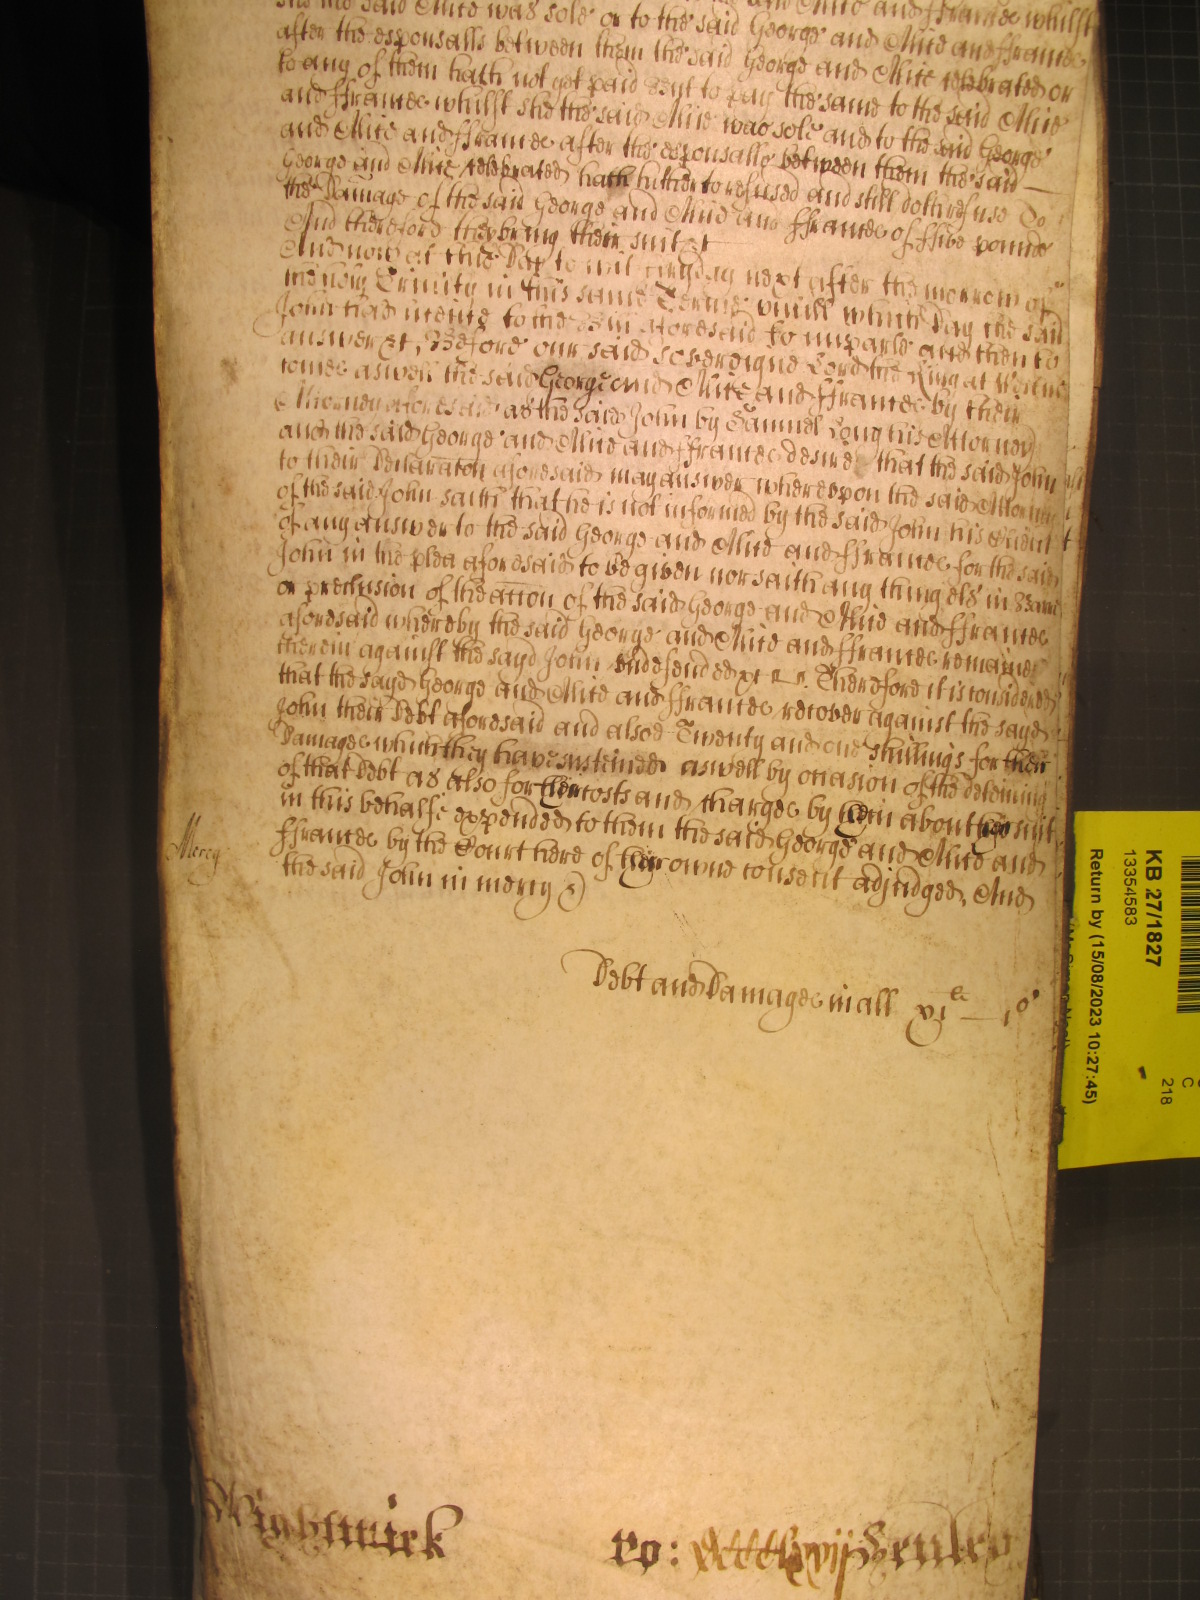 she the said Alice was sole or to the said George and Alice and ffrances whilst
after the espousalls between them the said George and Alice and ffrances
to any of them hath not yet paid but to pay the same to the said Alice
and ffrances whilst she the said Alice was sole and to the said George
and Alice and ffrances after the espousalls between them the said
George and Alice celebrated hath hitherto refused and still doth refuse To
the Damage of the said George and Alice and ffrances of ffive pounds
And therefore they bring their suit &c
And now at this Day to wit next after the morrow of
the holy Trinity in this same Terme untill which Day the said
John had licence to the Bill aforesaid to imparle and then to
answer &c Before our said Sovereigne Lord the King at
comes aswell the said George and Alice and ffrances by their
Attorney aforesaid as the said John by Samuel Long his Attorney
and the said George and Alice and ffrances desire that the said John
to their Declaracon aforesaid may answer whereupon the said Attorney
of the said John saith that he is not informed by the said John his Client
of any answer to the said George and Alice and ffrances for the said
John in the plea aforesaid to be given nor saith any thing els in Barr
or preclusion of the accon of the said George and Alice and ffrances
aforesaid whereby the said George and Alice and ffrances remaine
therein against the sayd John undefended &c Therefore it is considered
that the sayd George and Alice and ffrances recover against the sayd
John their Debt aforesaid and alsoe Twenty and one shillings for their
Damages which they have susteined aswell by occasion of the deteining
of that Debt as also for their costs and charges by them about their suit
in this behalfe expended to them the said George and Alice and
ffrances by the Court here of their owne consent adjudged, And
the said John in mercy &
Mercy
Debt and Damages in all xj li — js
Wightwick
ro:
KB 27/1827
13354583
Return by (15/08/2023 10:27:45)
C
218